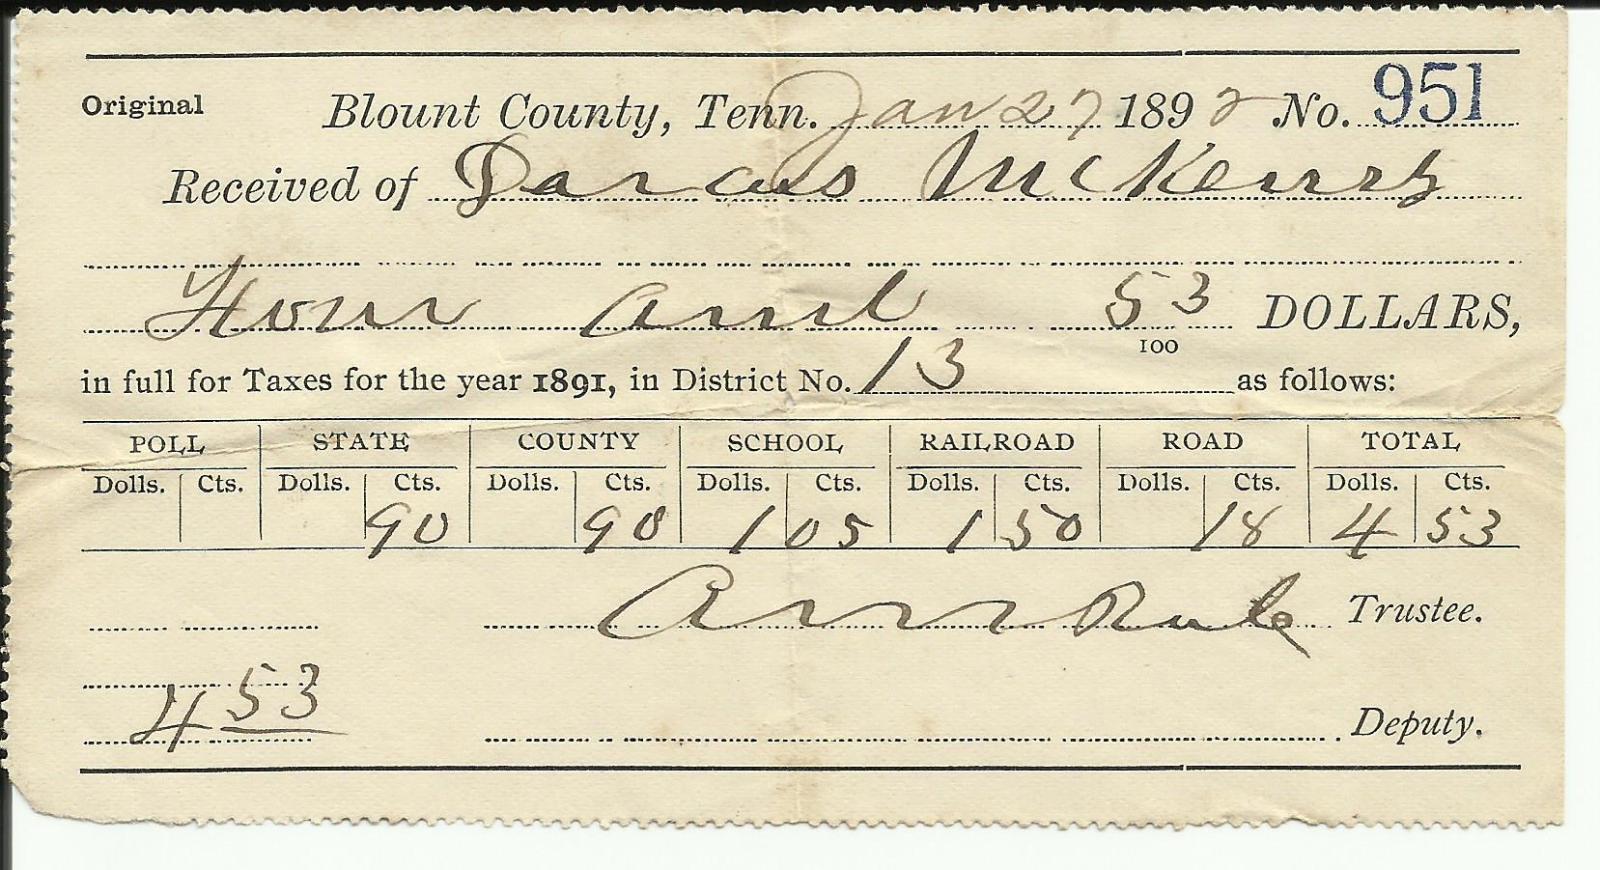 Original Blount County, Tenn. Jan 27 1892 No. 951
Received of Darcus McKenry
Four and 53/100 DOLLARS,
in full for Taxes for the year 1891, in District No. 13 as follows:
POLL STATE COUNTY SCHOOL RAILROAD ROAD TOTAL
Dolls. Cts. Dolls. Cts. Dolls. Cts. Dolls. Cts. Dolls. Cts. Dolls. Cts. Dolls. Cts.
90 90 1 05 1 50 18 4 53
Trustee.
4 53
Deputy.